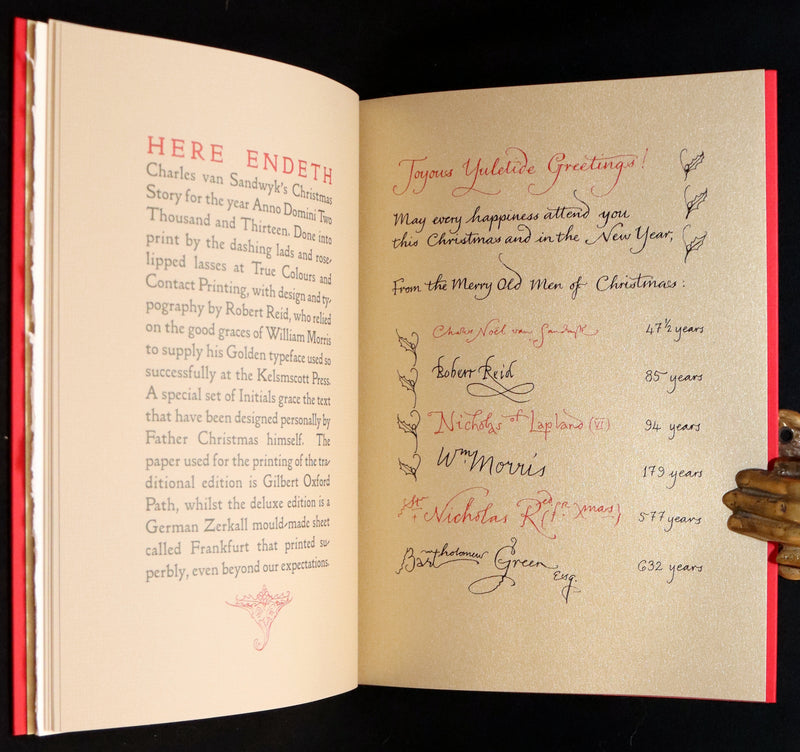 HERE ENDETH
Charles van Sandwyk's Christmas
Story for the year Anno Domini Two
Thousand and Thirteen. Done into
print by the dashing lads and rose-
lipped lasses at True Colours and
Contact Printing, with design and ty-
pography by Robert Reid, who relied
on the good graces of William Morris
to supply his Golden typeface used so
successfully at the Kelsmscott Press.
A special set of Initials grace the text
that have been designed personally by
Father Christmas himself. The
paper used for the printing of the tra-
ditional edition is Gilbert Oxford
Path, whilst the deluxe edition is a
German Zerkall mould-made sheet
called Frankfurt that printed su-
perbly, even beyond our expectations.
Joyous Yuletide Greetings!
May every happiness attend you
this Christmas and in the New Year,
From the Merry Old Men of Christmas:
Charles Noël van Sandwyk 47½ years
Robert Reid 85 years
Nicholas of Lapland (VI) 94 years
Wm Morris 179 years
St. Nicholas Red (Fr. Xmas) 577 years
Bartholomew Green Esq. 632 years